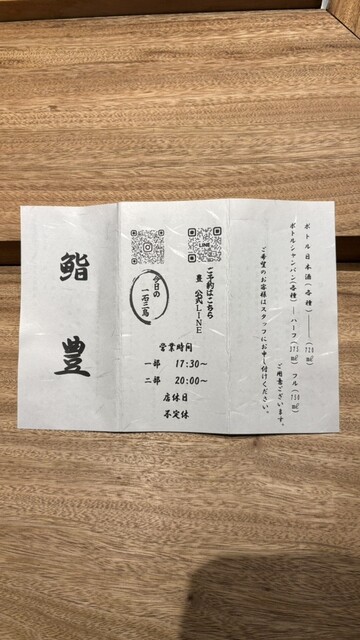 ボトル日本酒(各種)――(720㎖)
ボトルシャンパン(各種)―ハーフ(375㎖) フル(750㎖)
ご用意ございます。
ご希望のお客様はスタッフにお申し付けください。
LINE
ご予約はこちら
豊 公式LINE
今日の
一石三鳥
営業時間
一部 17:30～
二部 20:00～
店休日
不定休
鮨 豊